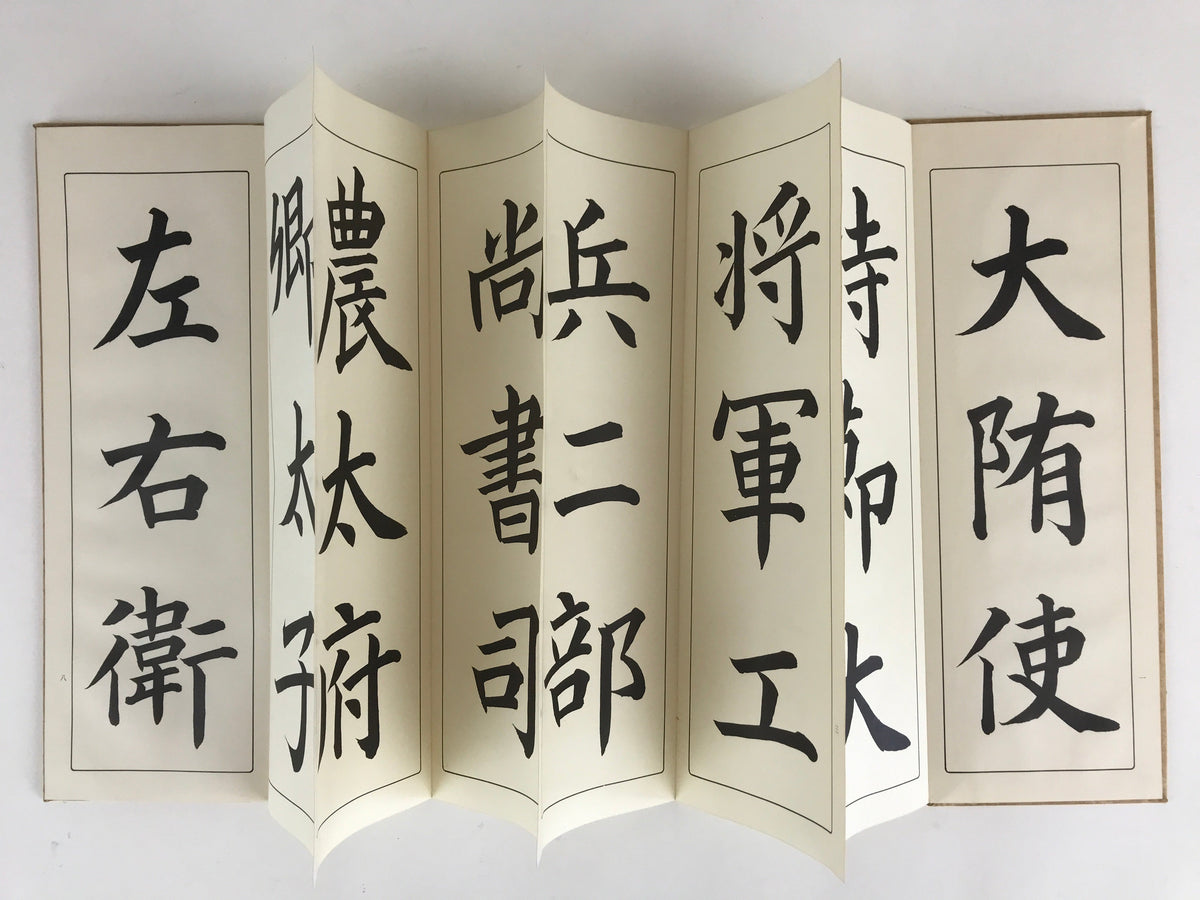 大陏使
一
持節大
将軍工
兵二部
尚書司
農太府
卿太子
左右衛
八